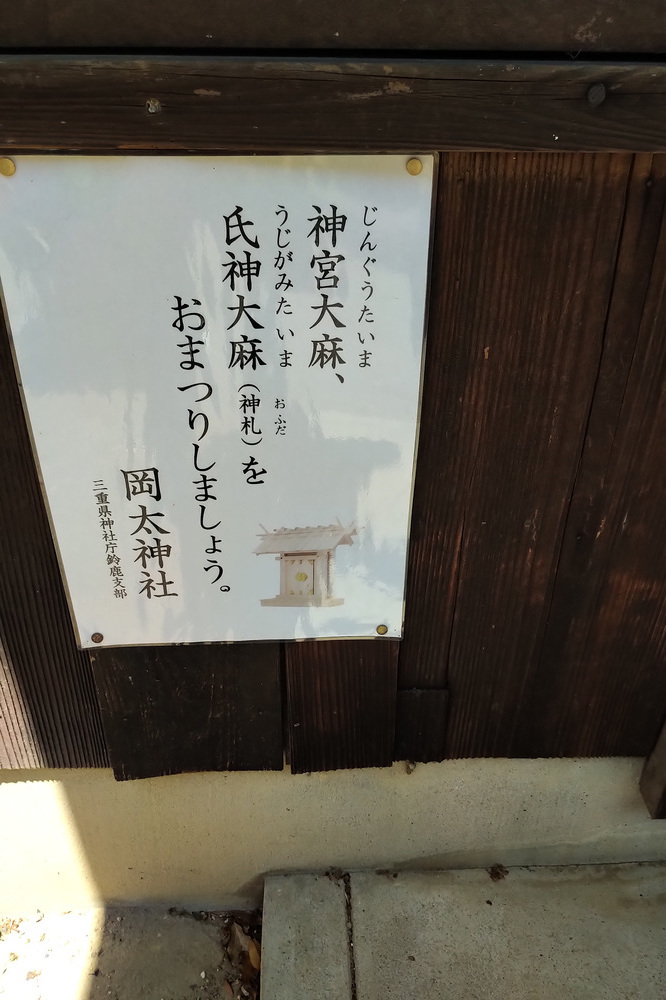 じんぐうたいま
神宮大麻、
うじがみたいま おふだ
氏神大麻(神札)を
おまつりしましょう。
岡太神社
三重県神社庁鈴鹿支部